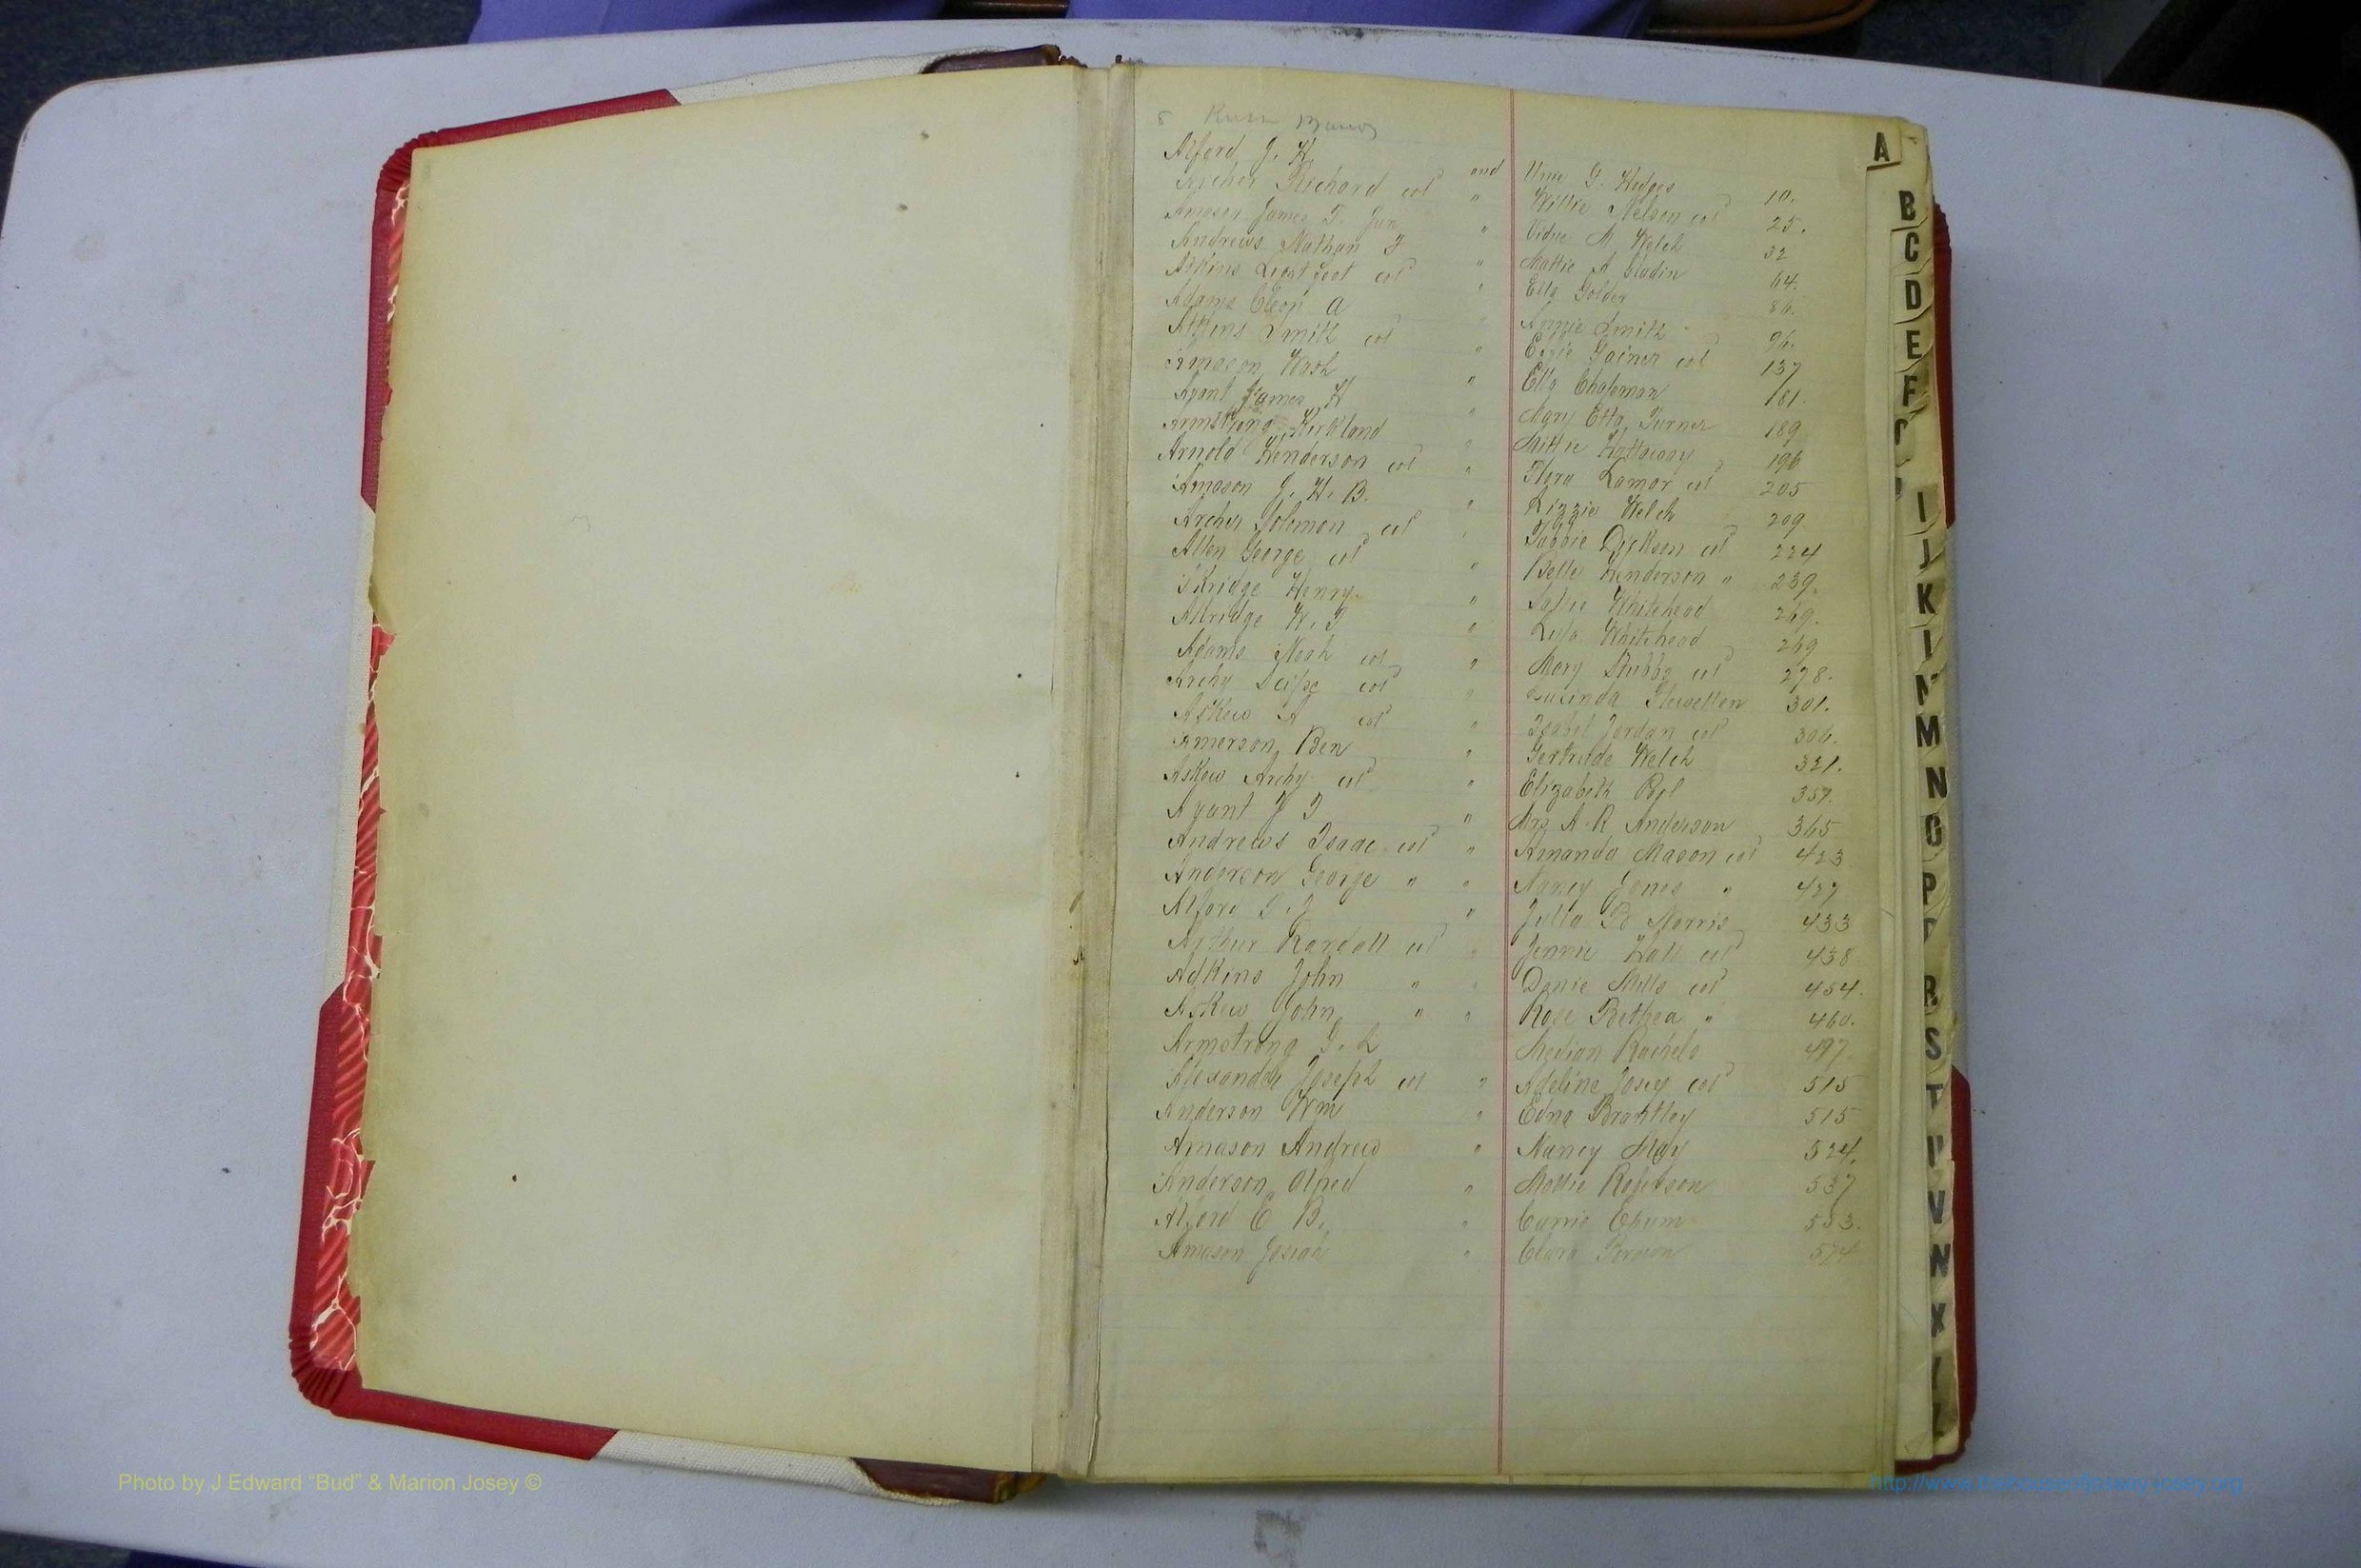 Alford J. H. and G. Hodges 10.
Archer Richard col " Willie Nelson col 25.
Amason James T. Jun " M. Welch 32
Andrews Nathan F " Mattie A Gladin 64.
Atkins Lightfoot col " Ella Golder 86.
Adams A " Annie Smith 96.
Atkins Smith col " Gainer col 137
Amason Wash " Ella Chapman 181.
Avant James H " Mary Etta Turner 189
Armstrong Kirkland " Mittie Hattaway 196
Arnold Henderson col " Flora Lamar col 205
Amason J. H. B. " Lizzie Welch 209
Archer Solomon col " Dickson col 224
Allen George col " Belle Henderson " 239.
Henry " Sallie Whitehead 249.
Aldridge W. T " Lula Whitehead 249
Adams Noah col " Mary Stubbs col 278.
Archy col " Lucinda Flewellen 301.
Askew A col " Isabel Jordan col 306.
Amerson Ben " Gertrude Welch 321.
Askew Archy col " Elizabeth Pool 357.
Avant J T " Mrs A. R. Anderson 365
Andrews Isaac col " Amanda Mason col 423
Anderson George " " Nancy Jones " 427
Alford " Julia B Morris 433
Arthur Randall col " Jennie Hall col 438
Adkins John " " Mills col 454.
Askew John " " Rose Bethea " 460.
Armstrong G. L Median Rachels 497.
Alexander Joseph col " Adeline Josey col 515
Anderson Wm " Edna Brantley 515
Amason Andrew " Nancy May 524.
Anderson Alfred " Mollie Roberson 537
Alford E B. " Carrie 553.
Amason Josiah " Clara Brown 574
A
B
C
D
E
F
I
J
K
M
N
O
P
R
S
T
V
X
Photo by J Edward “Bud” & Marion Josey ©